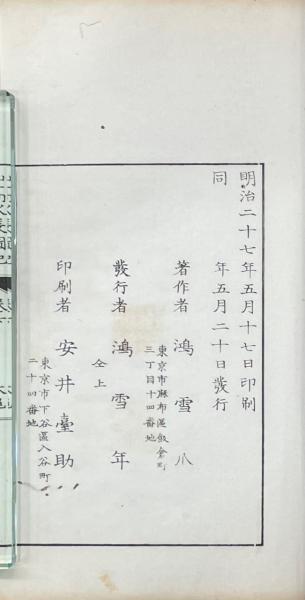 明治二十七年五月十七日印刷
同　　　年五月二十日發行
著作者　鴻雪爪
東京市麻布區飯倉町
三丁目十四番地
發行者　鴻雪年
仝上
印刷者　安井臺助
東京市下谷區入谷町
二十四番地